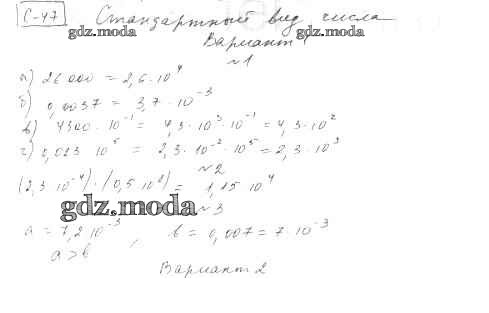 С-47 Стандартный вид числа
gdz.moda gdz.moda
Вариант 1
№1
а) 26 000 = 2,6·10⁴
б) 0,0037 = 3,7·10⁻³
в) 4300·10⁻¹ = 4,3·10³·10⁻¹ = 4,3·10²
г) 0,023 10⁵ = 2,3·10⁻²·10⁵ = 2,3·10³
№2
(2,3 10⁻⁴)·(0,5 10⁸) = 1,15 10⁴
gdz.moda
№3
a = 7,2 10⁻³, b = 0,007 = 7·10⁻³
a > b
Вариант 2